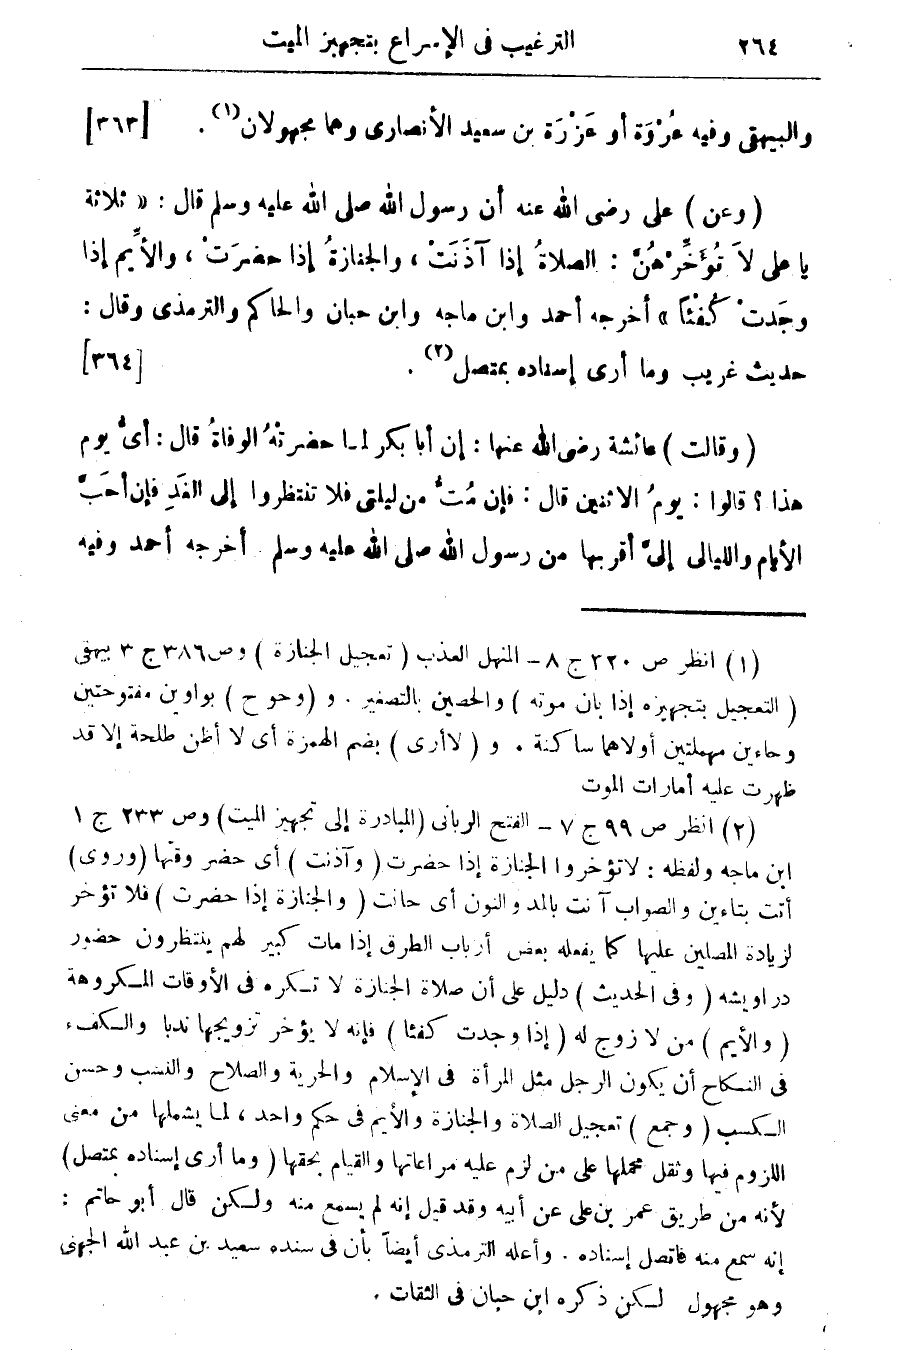 ٢٦٤ الترغيب فى الإسراع بتجهيز الميت
والبيهقى وفيه عُرْوَة أو عَزْرَة بن سعيد الأنصارى وهما مجهولان(١) . [٣٦٣]
( وعن ) على رضى الله عنه أن رسول الله صلى الله عليه وسلم قال : « ثلاثة
يا على لاَ تُؤَخِّرْهُنَّ : الصلاةُ إذا آذَنَتْ ، والجنازةُ إذا حضرَتْ ، والأيِّم إذا
وجَدتْ كُفْئاً » أخرجه أحمد وابن ماجه وابن حبان والحاكم والترمذى وقال :
حديث غريب وما أرى إسناده بمتصل(٢) . [٣٦٤]
( وقالت ) عائشة رضى الله عنها : إن أبا بكر لما حضرتْهُ الوفاةُ قال : أىُّ يوم
هذا ؟ قالوا : يومُ الاثنين قال : فإن مُتُّ من ليلتى فلا تنتظروا إلى الغَدِ فإن أحَبَّ
الأيام والليالى إلىَّ أقربها من رسول الله صلى الله عليه وسلم أخرجه أحمد وفيه
(١) انظر ص ٢٢٠ ج ٨ – المنهل العذب ( تعجيل الجنازة ) وص ٣٨٦ ج ٣ بيهقى
( التعجيل بتجهيزه إذا بان موته ) والحصين بالتصغير . و ( وحوح ) بواوين مفتوحتين
وحاءين مهملتين أولاهما ساكنة . و ( لاأرى ) بضم الهمزة أى لا أظن طلحة إلا قد
ظهرت عليه أمارات الموت
(٢) انظر ص ٩٩ ج ٧ – الفتح الربانى (المبادرة إلى تجهيز الميت) وص ٢٣٣ ج ١
ابن ماجه ولفظه : لاتؤخروا الجنازة إذا حضرت ( وآذنت ) أى حضر وقتها (وروى)
أتت بتاءين والصواب آنت بالمد والنون أى حانت ( والجنازة إذا حضرت ) فلا تؤخر
لزيادة المصلين عليها كما يفعله بعض أرباب الطرق إذا مات كبير لهم ينتظرون حضور
دراويشه ( وفى الحديث ) دليل على أن صلاة الجنازة لا تكره فى الأوقات المكروهة
( والأيم ) من لا زوج له ( إذا وجدت كفئا ) فإنه لا يؤخر تزويجها ندبا والكفء
فى النكاح أن يكون الرجل مثل المرأة فى الإسلام والحرية والصلاح والنسب وحسن
الكسب ( وجمع ) تعجيل الصلاة والجنازة والأيم فى حكم واحد ، لما يشملها من معنى
اللزوم فيها وثقل محملها على من لزم عليه مراعاتها والقيام بحقها ( وما أرى إسناده بمتصل)
لأنه من طريق عمر بن على عن أبيه وقد قيل إنه لم يسمع منه ولكن قال أبو حاتم :
إنه سمع منه فاتصل إسناده . وأعله الترمذى أيضاً بأن فى سنده سعيد بن عبد الله الجهنى
وهو مجهول لكن ذكره ابن حبان فى الثقات .